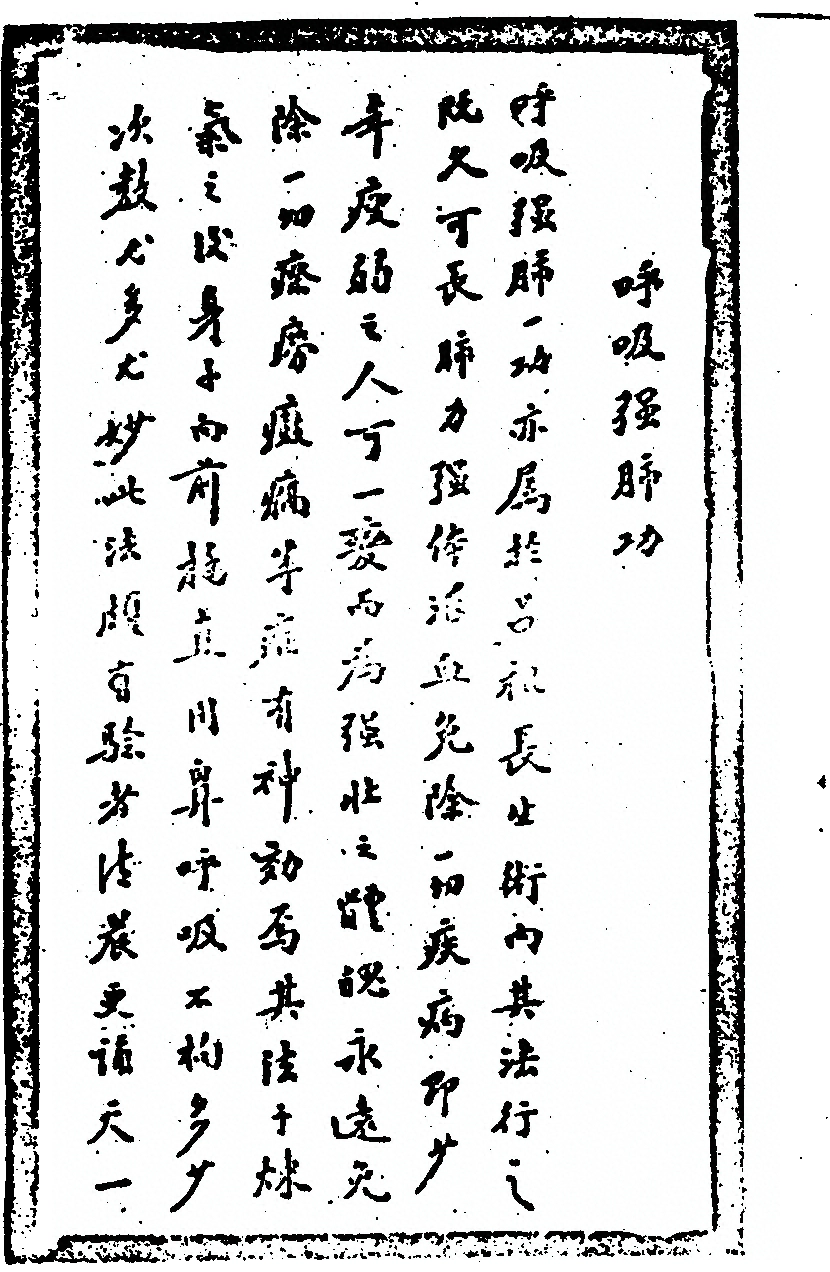 呼吸强肺功
呼吸强肺一功亦屬於呂祖長生術內其法行之
既久可長肺力强体活血免除一切疾病即少
年瘦弱之人可一變而為强壯之體魄永遠免
除一切等症有神効焉其法于炼
氣之後身子向前挺直用鼻呼吸不构多少
次数尤多尤妙此法頗有驗者清晨更天一